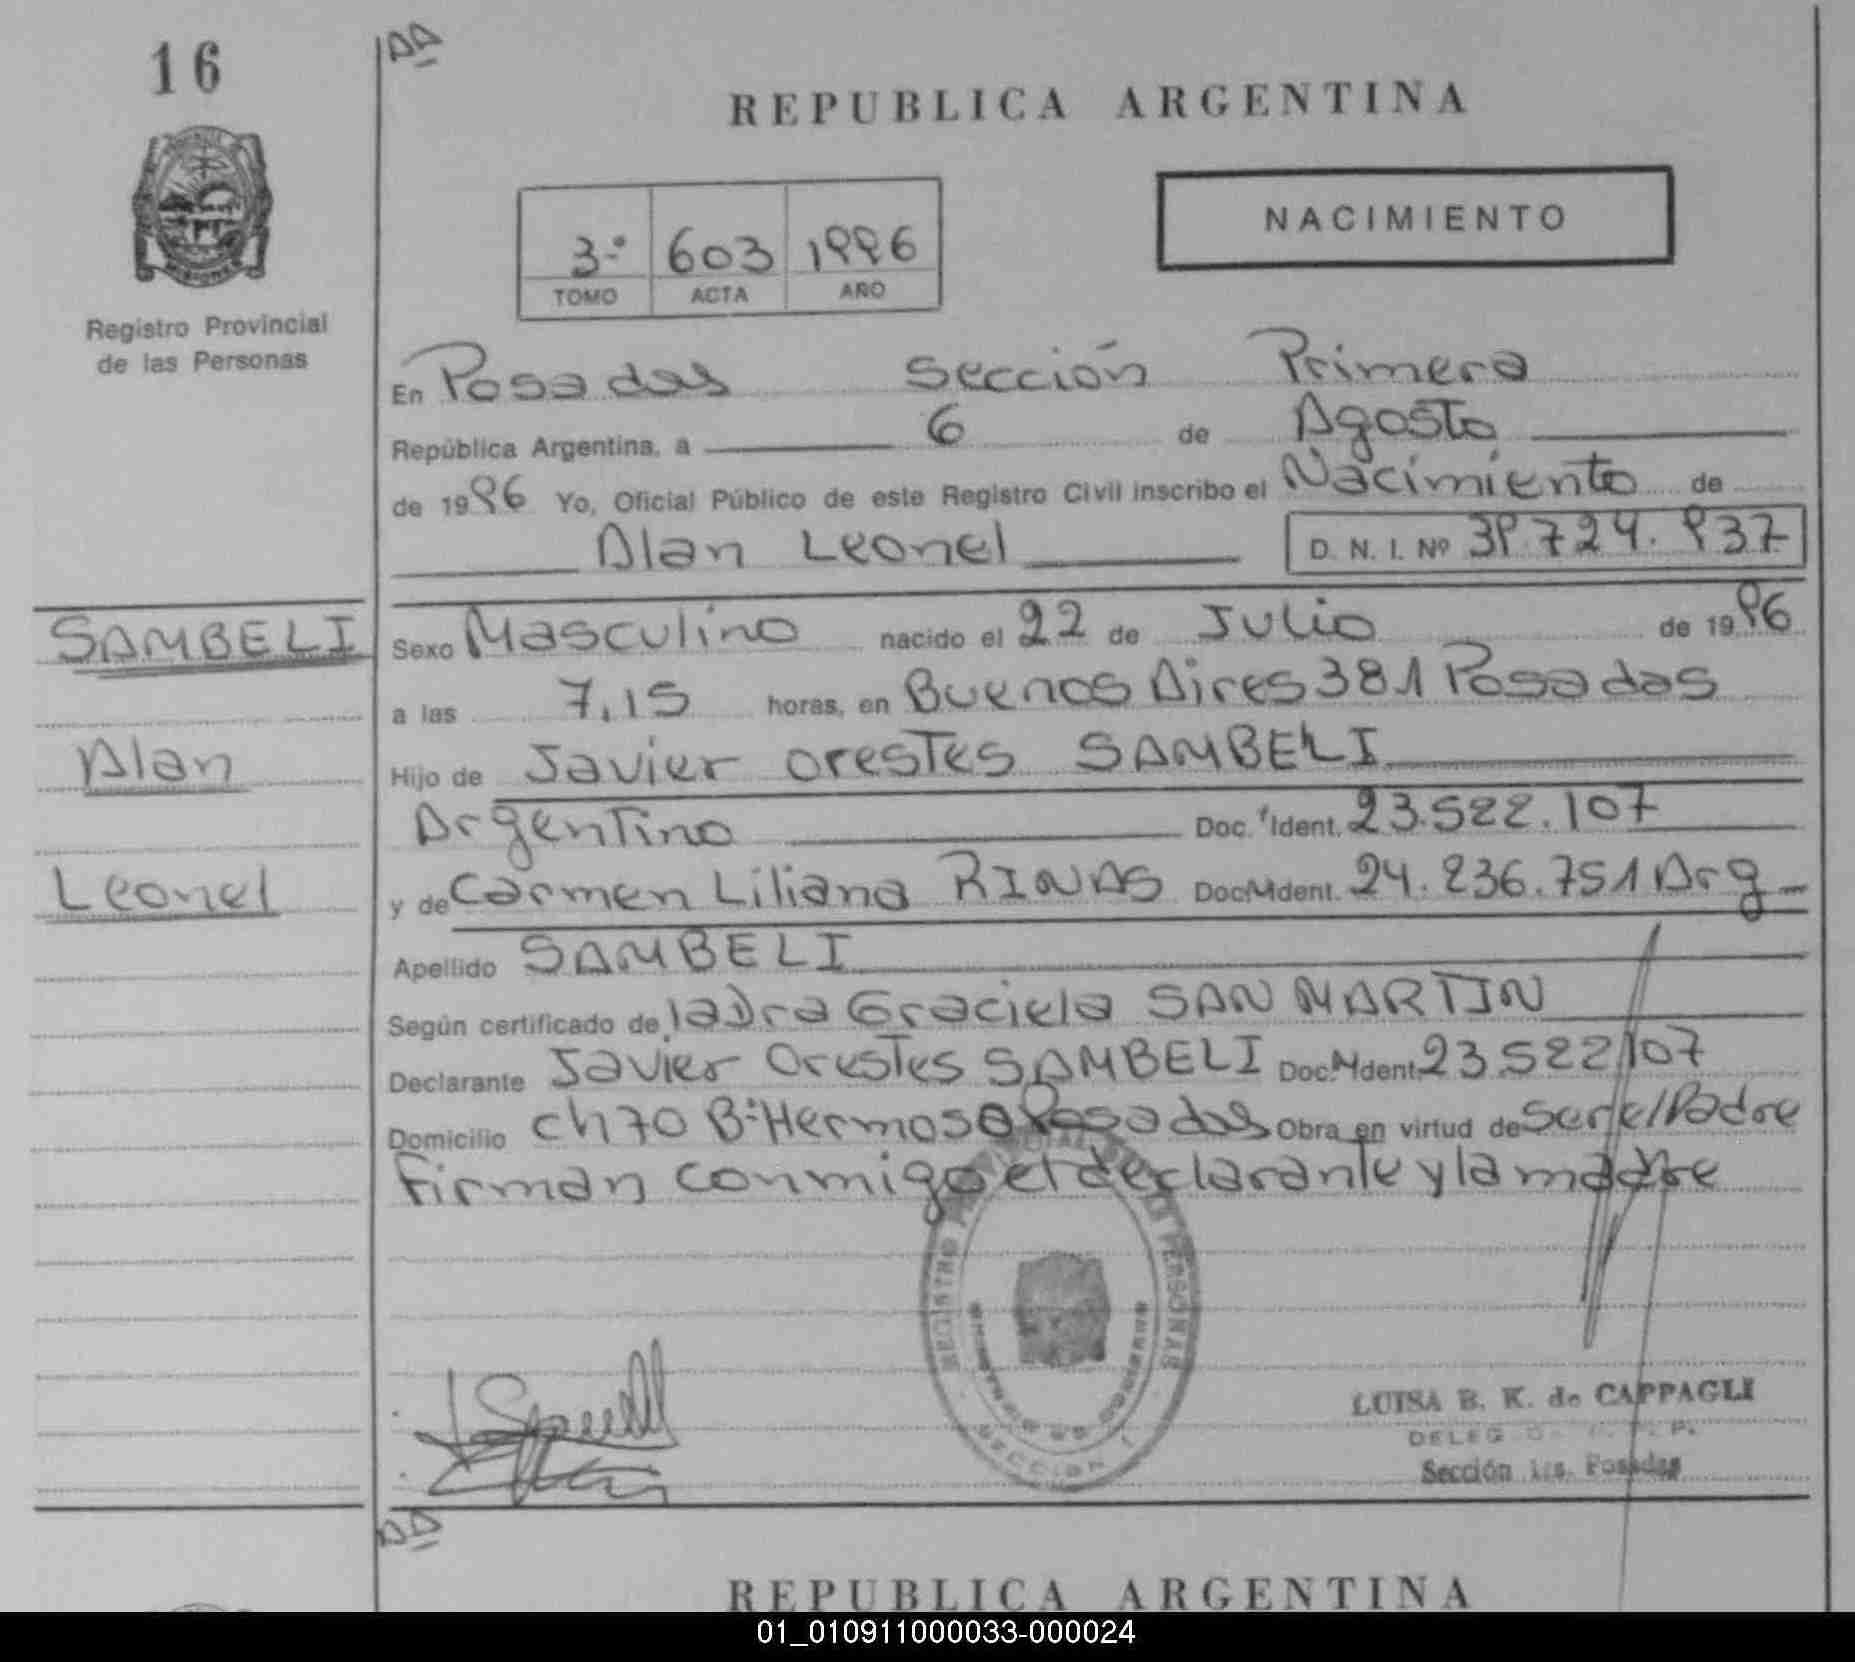 16
AA
REPUBLICA ARGENTINA
NACIMIENTO
3º 603 1996
TOMO ACTA AÑO
Registro Provincial
de las Personas
En Posadas Sección Primera
República Argentina, a 6 de Agosto
de 1996 Yo, Oficial Público de este Registro Civil inscribo el Nacimiento de
Alan Leonel D. N. I. Nº 39.724.937
SAMBELI
Alan
Leonel
Sexo Masculino nacido el 22 de Julio de 1996
a las 7,15 horas, en Buenos Aires 381 Posadas
Hijo de Javier Orestes SAMBELI
Argentino Doc. Ident. 23.522.107
y de Carmen Liliana RINAS Doc. Ident. 24.236.751 Arg
Apellido SAMBELI
Según certificado de la Dra Graciela SAN MARTIN
Declarante Javier Orestes SAMBELI Doc. Ident. 23.522.107
Domicilio Ch 70 Bº Hermoso Posadas Obra en virtud de ser el Padre
Firman conmigo el declarante y la madre
REGISTRO PROVINCIAL DE LAS PERSONAS
SECCION 1
LUISA B. K. de CAPPAGLI
DELEG
Sección 1ra. Posadas
AA
REPUBLICA ARGENTINA
01_010911000033-000024